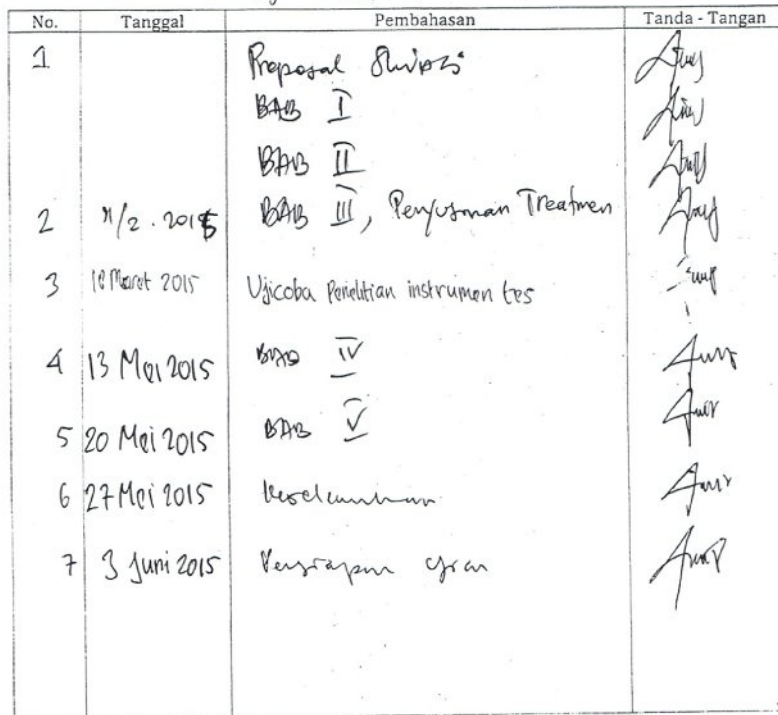 No. Tanggal Pembahasan Tanda - Tangan
1 Proposal Skripsi
BAB I
BAB II
2 11/2 . 2015 BAB III, Penyusunan Treatmen
3 18 Maret 2015 Ujicoba Penelitian instrumen tes
4 13 Mei 2015 BAB IV
5 20 Mei 2015 BAB V
6 27 Mei 2015 Keseluruhan
7 3 Juni 2015 Persiapan Ujian